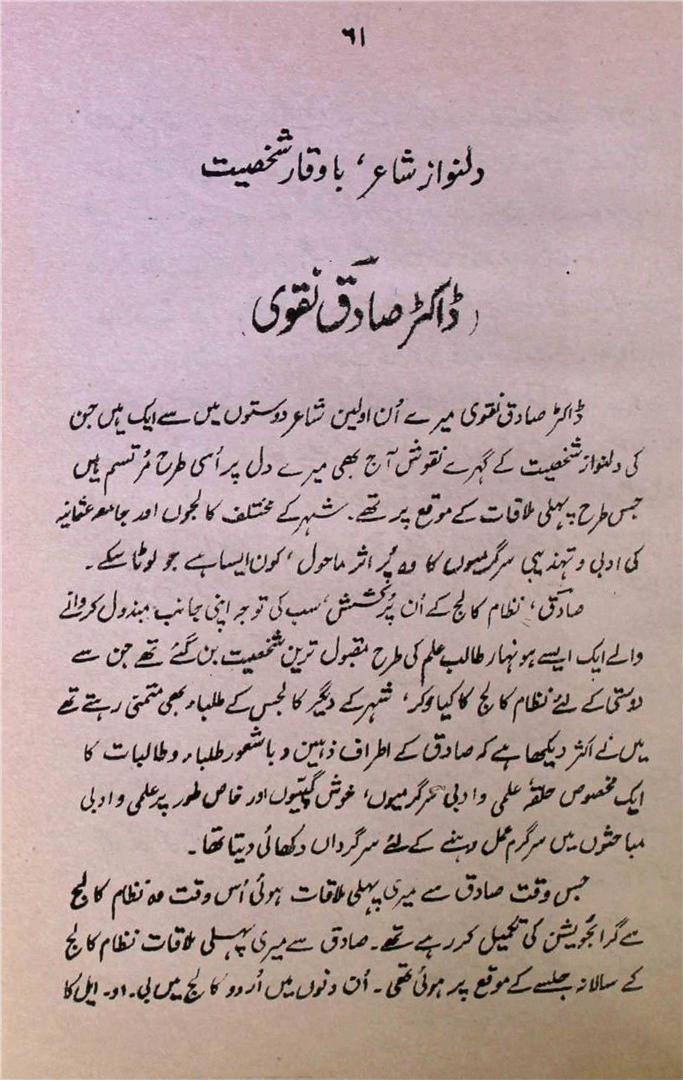 ۶۱
دلنواز شاعر، باوقار شخصیت
ڈاکٹر صادقؔ نقوی
ڈاکٹر صادق نقوی میرے اُن اولین شاعر دوستوں میں سے ایک ہیں جن
کی دلنواز شخصیت کے گہرے نقوش آج بھی میرے دل پر اُسی طرح مُرتسم ہیں
جس طرح پہلی ملاقات کے موقع پر تھے۔ شہر کے مختلف کالجوں اور جامعہ عثمانیہ
کی ادبی و تہذیبی سرگرمیوں کا وہ پُر اثر ماحول، کون ایسا ہے جو لوٹا سکے۔
صادقؔ، نظام کالج کے اُن پُرکشش، سب کی توجہ اپنی جانب مبذول کروانے
والے ایک ایسے ہونہار طالب علم کی طرح مقبول ترین شخصیت بن گئے تھے جن سے
دوستی کے لئے نظام کالج کا کیا ذکر، شہر کے دیگر کالجس کے طلباء بھی متمنی رہتے تھے
میں نے اکثر دیکھا ہے کہ صادق کے اطراف ذہین و باشعور طلباء و طالبات کا
ایک مخصوص حلقہ علمی و ادبی سرگرمیوں، خوش گپیوں اور خاص طور پر علمی و ادبی
مباحثوں میں سرگرم عمل رہنے کے لئے سرگرداں دکھائی دیتا تھا۔
جس وقت صادق سے میری پہلی ملاقات ہوئی اُس وقت وہ نظام کالج
سے گرایجویشن کی تکمیل کر رہے تھے۔ صادق سے میری پہلی ملاقات نظام کالج
کے سالانہ جلسے کے موقع پر ہوئی تھی۔ اُن دنوں میں اُردو کالج میں بی۔ او۔ ایل کا